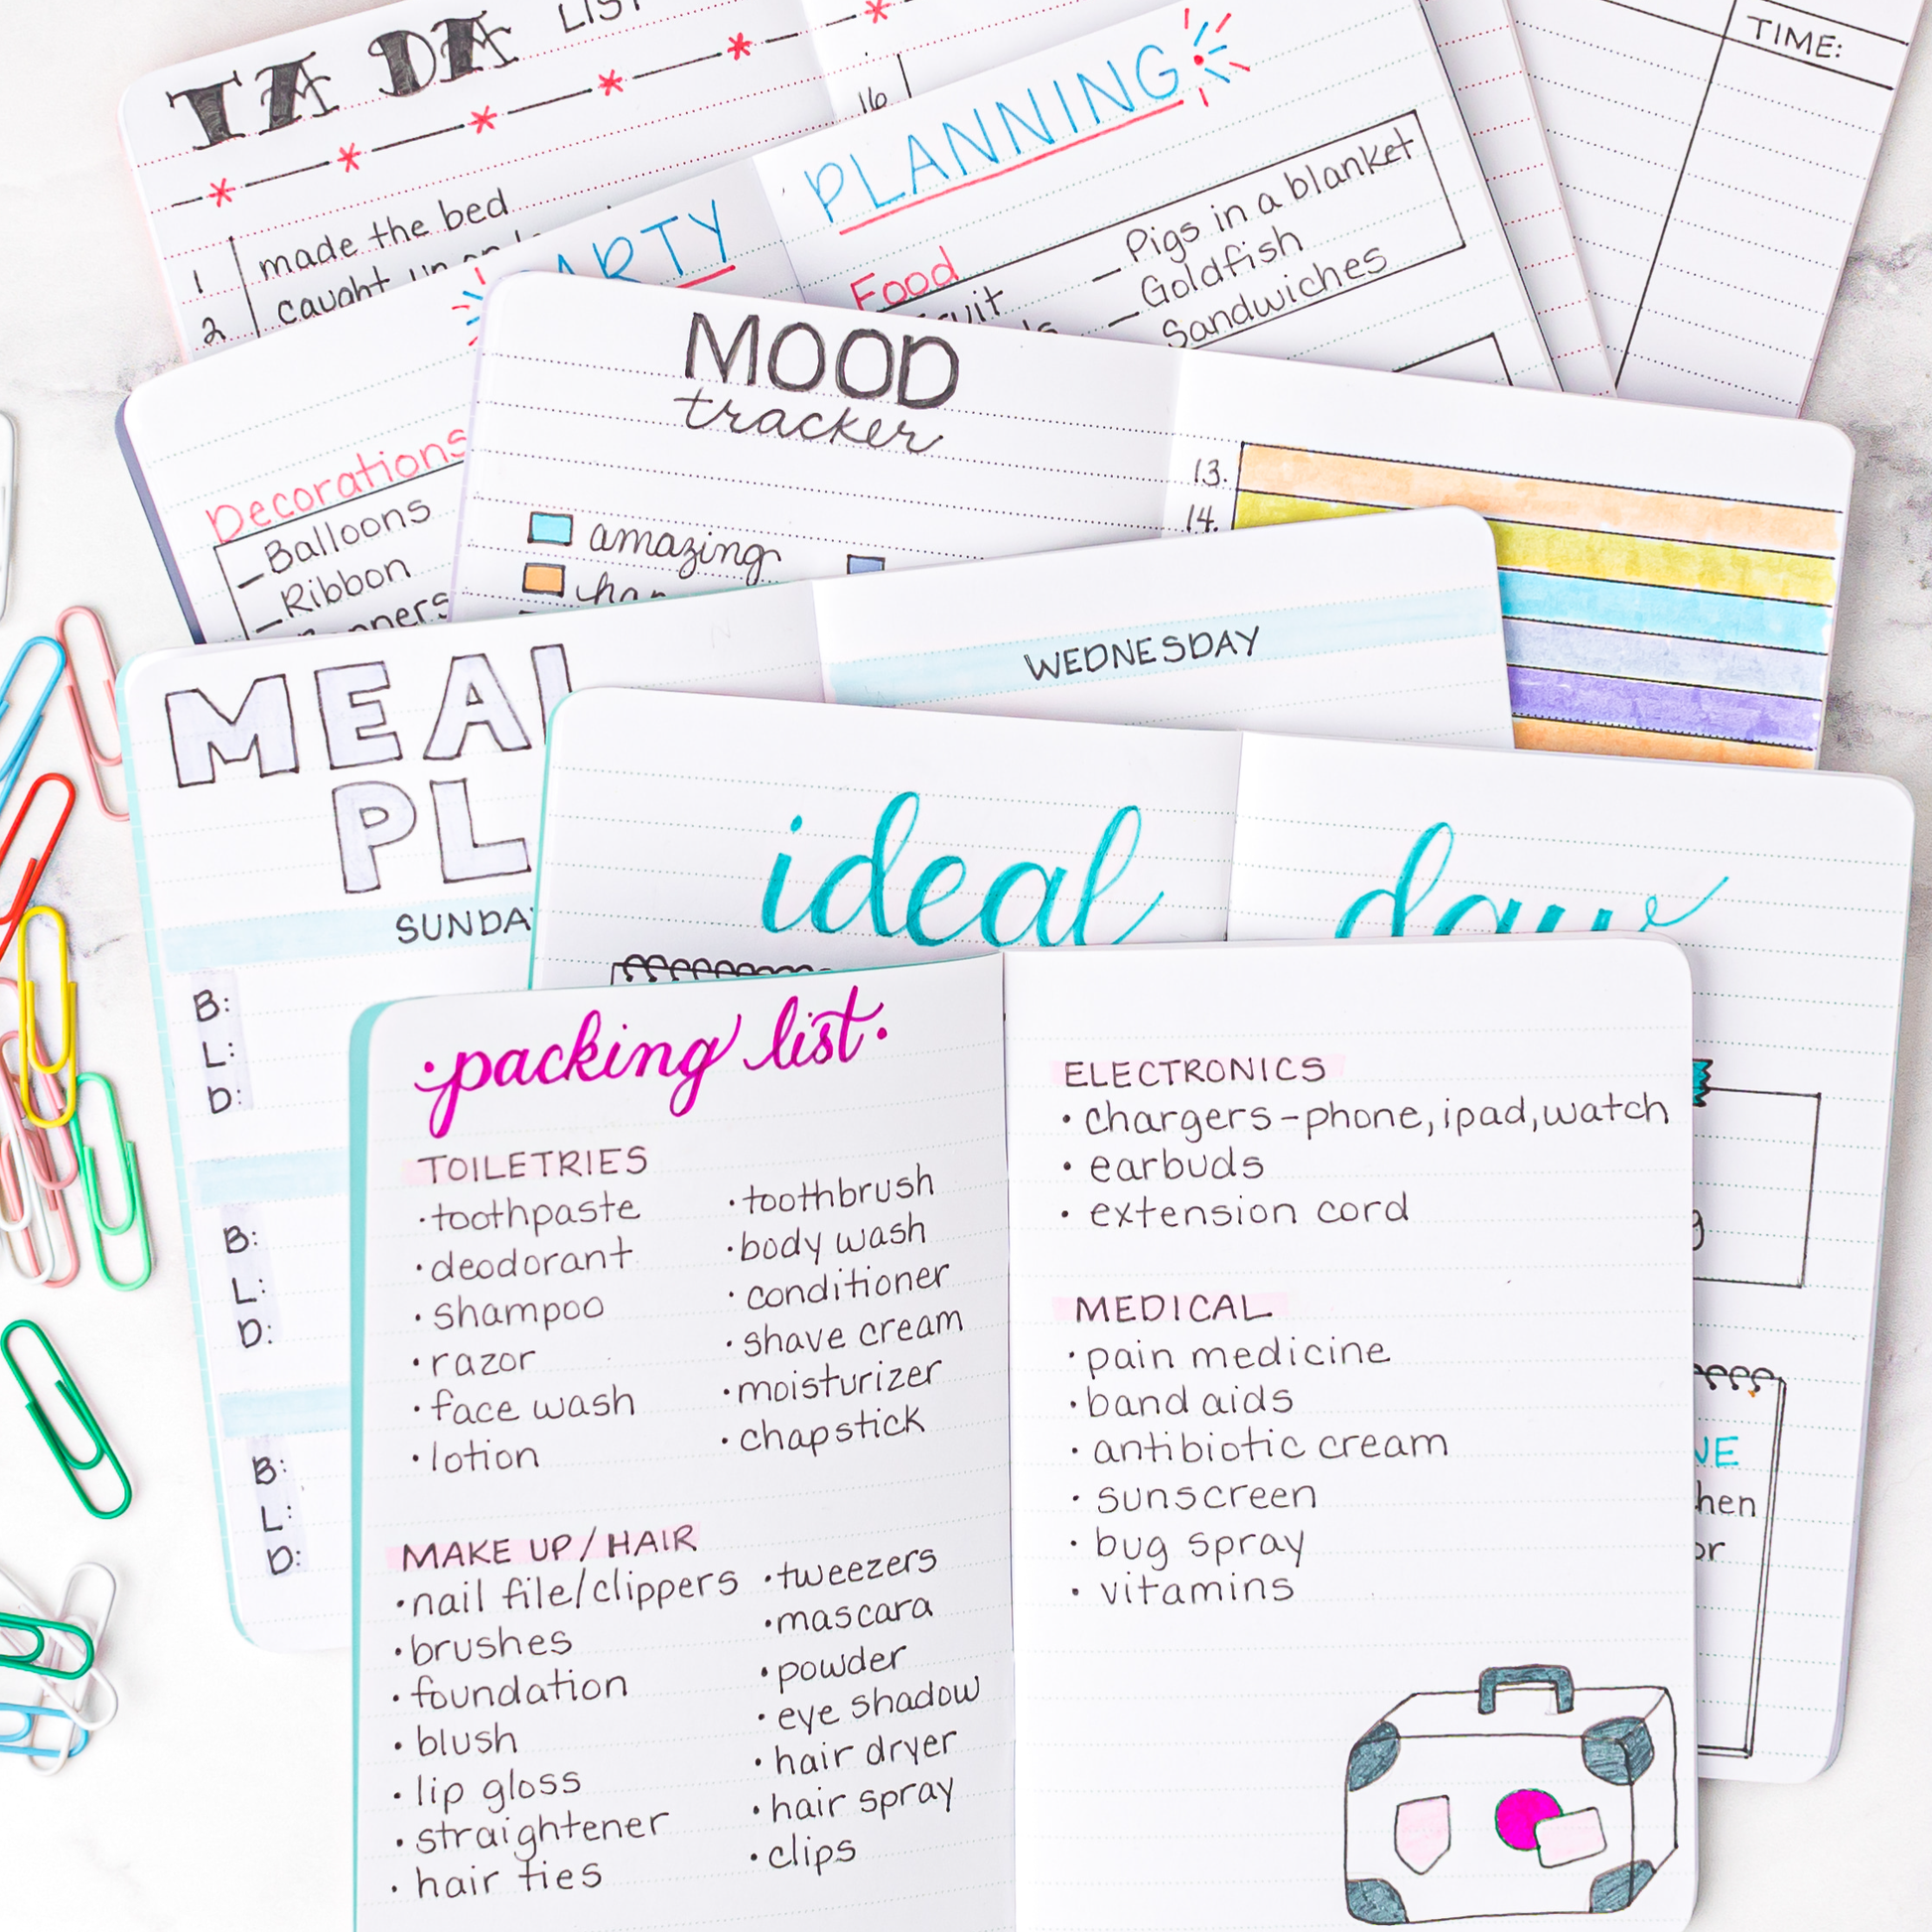 TA DA LIST
1 made the bed
2 caught up on
16
TIME:
PARTY PLANNING
Food
Pigs in a blanket
Goldfish
Sandwiches
Decorations
Balloons
Ribbon
MOOD
tracker
amazing
13.
14.
MEAL
PL
WEDNESDAY
SUNDAY
B:
L:
D:
B:
L:
D:
B:
L:
D:
ideal day
hen
or
•packing list•
TOILETRIES
•toothpaste
•deodorant
•shampoo
•razor
•face wash
•lotion
•toothbrush
•body wash
•conditioner
•shave cream
•moisturizer
•chapstick
MAKE UP/HAIR
•nail file/clippers
•brushes
•foundation
•blush
•lip gloss
•straightener
•hair ties
•tweezers
•mascara
•powder
•eye shadow
•hair dryer
•hair spray
•clips
ELECTRONICS
•chargers-phone, ipad, watch
•earbuds
•extension cord
MEDICAL
•pain medicine
•band aids
•antibiotic cream
•sunscreen
•bug spray
•vitamins